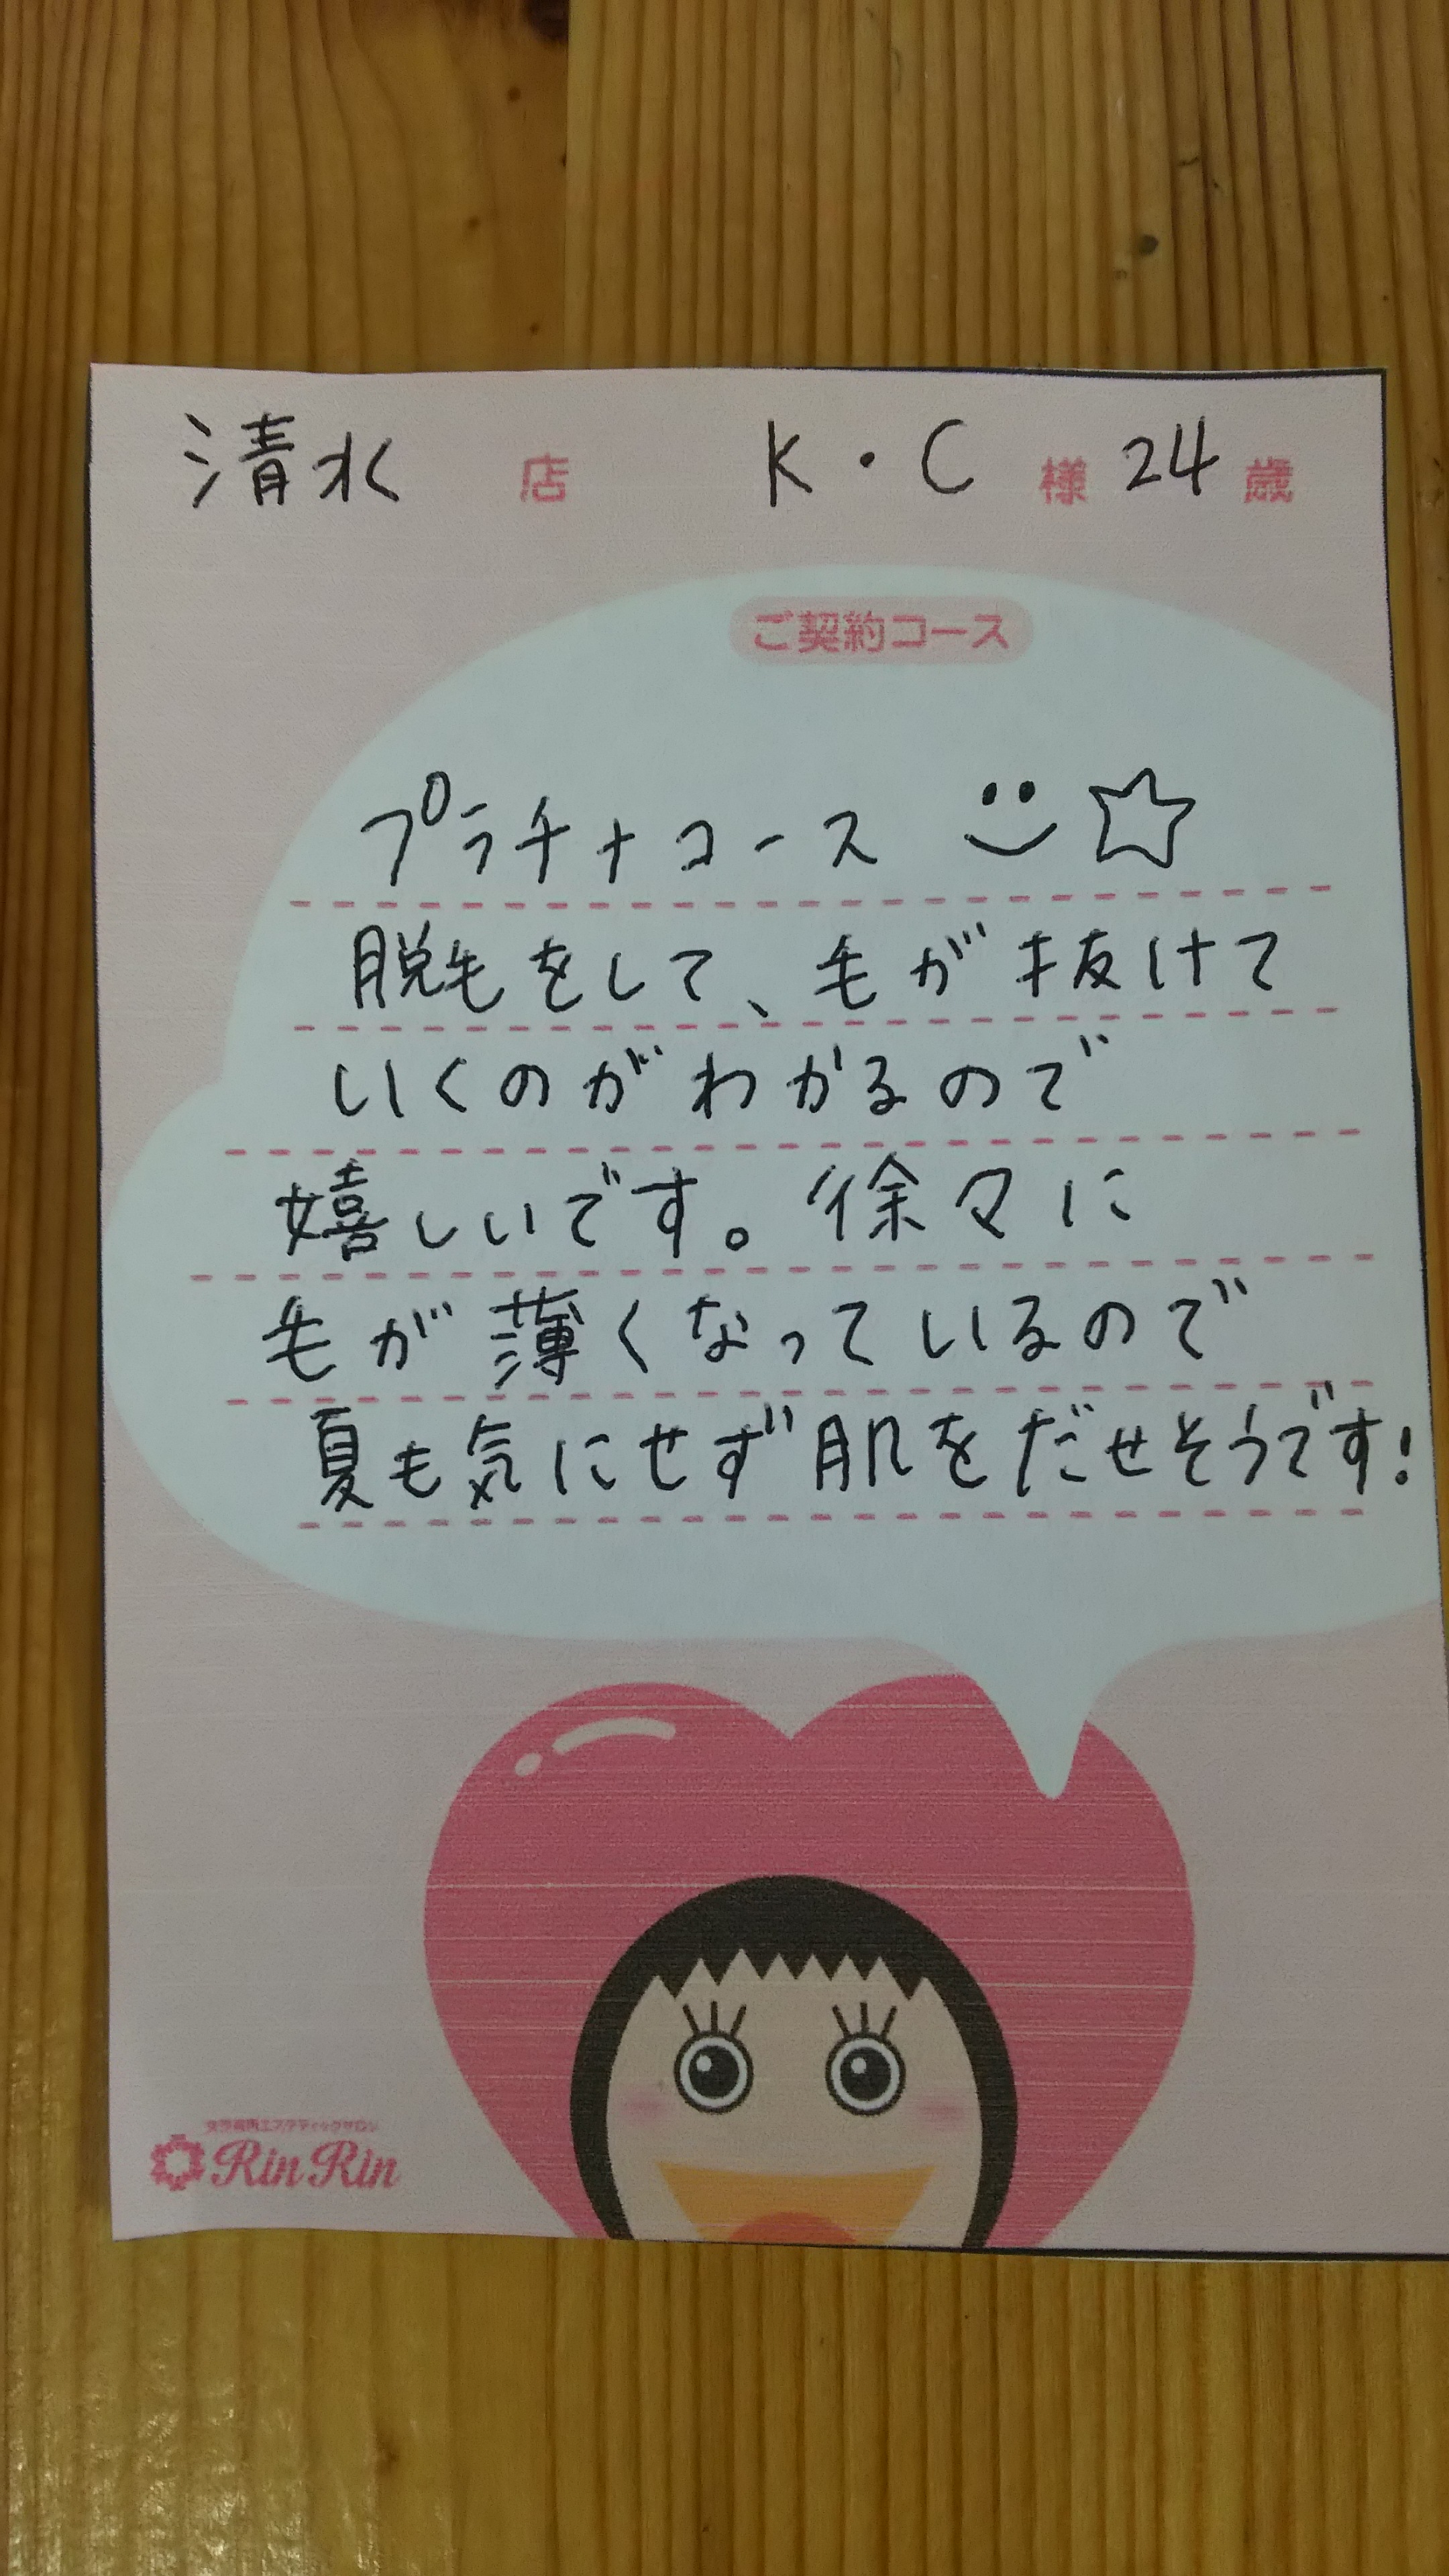 清水 店 K・C 様 24 歳
ご契約コース
プラチナコース
脱毛をして、毛が抜けて
いくのがわかるので
嬉しいです。徐々に
毛が薄くなっているので
夏も気にせず肌をだせそうです!
RinRin